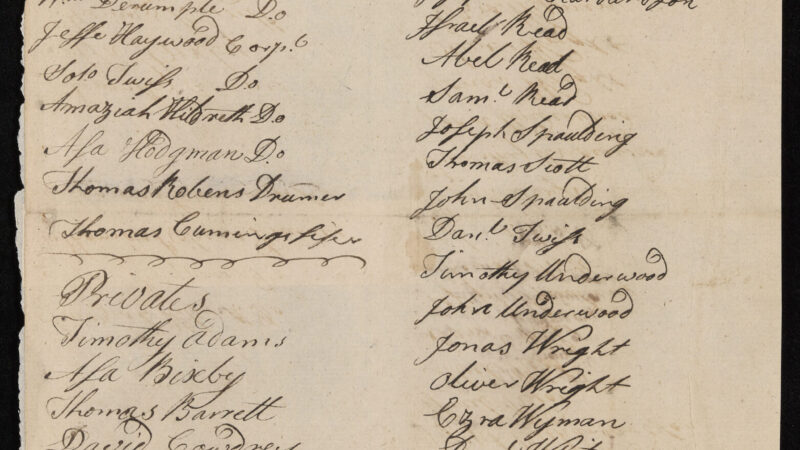 Derumple Do
Jesse Haywood Corpl
Solo Twiss Do
Amaziah Hildreth Do
Asa Hodgman Do
Thomas Robens Drumer
Thomas Cumings fifer
Privates
Timothy Adams
Asa Bixby
Thomas Barrett
David Cowdrey
Richardson
Israel Read
Abel Read
Saml Read
Joseph Spaulding
Thomas Scott
John Spaulding
Danl Twiss
Timothy Underwood
John Underwood
Jonas Wright
Oliver Wright
Ezra Wyman